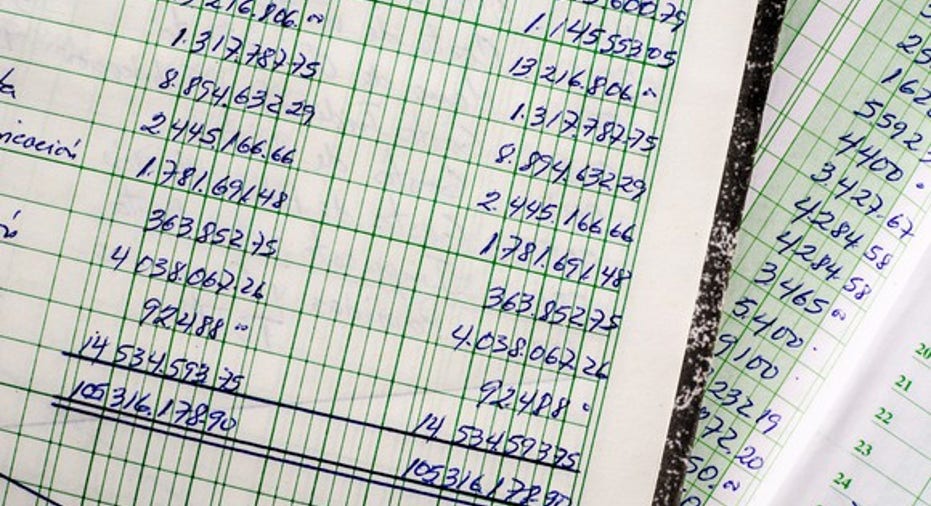 216.806.~ 600.79
1.317.787.75 1.145.553.05
8.894.632.29 13 216.806.~
2.445.166.66 1.317.787.75
1.781.691.48 8.894.632.29
363.852.75 2.445.166.66
4 038.067.26 1781.691.48
92.488 ~ 363.852.75
14 534.593.75 4.038.067.26
105316.178.90 92.488 ~
14 534.593.75
105316.178.90
25
162
5592
4400.
3.427.67
4284.58
4284.58
3465 ~
5.400.
9100.
232.19
72.20
50.~
20
21
22
23
24